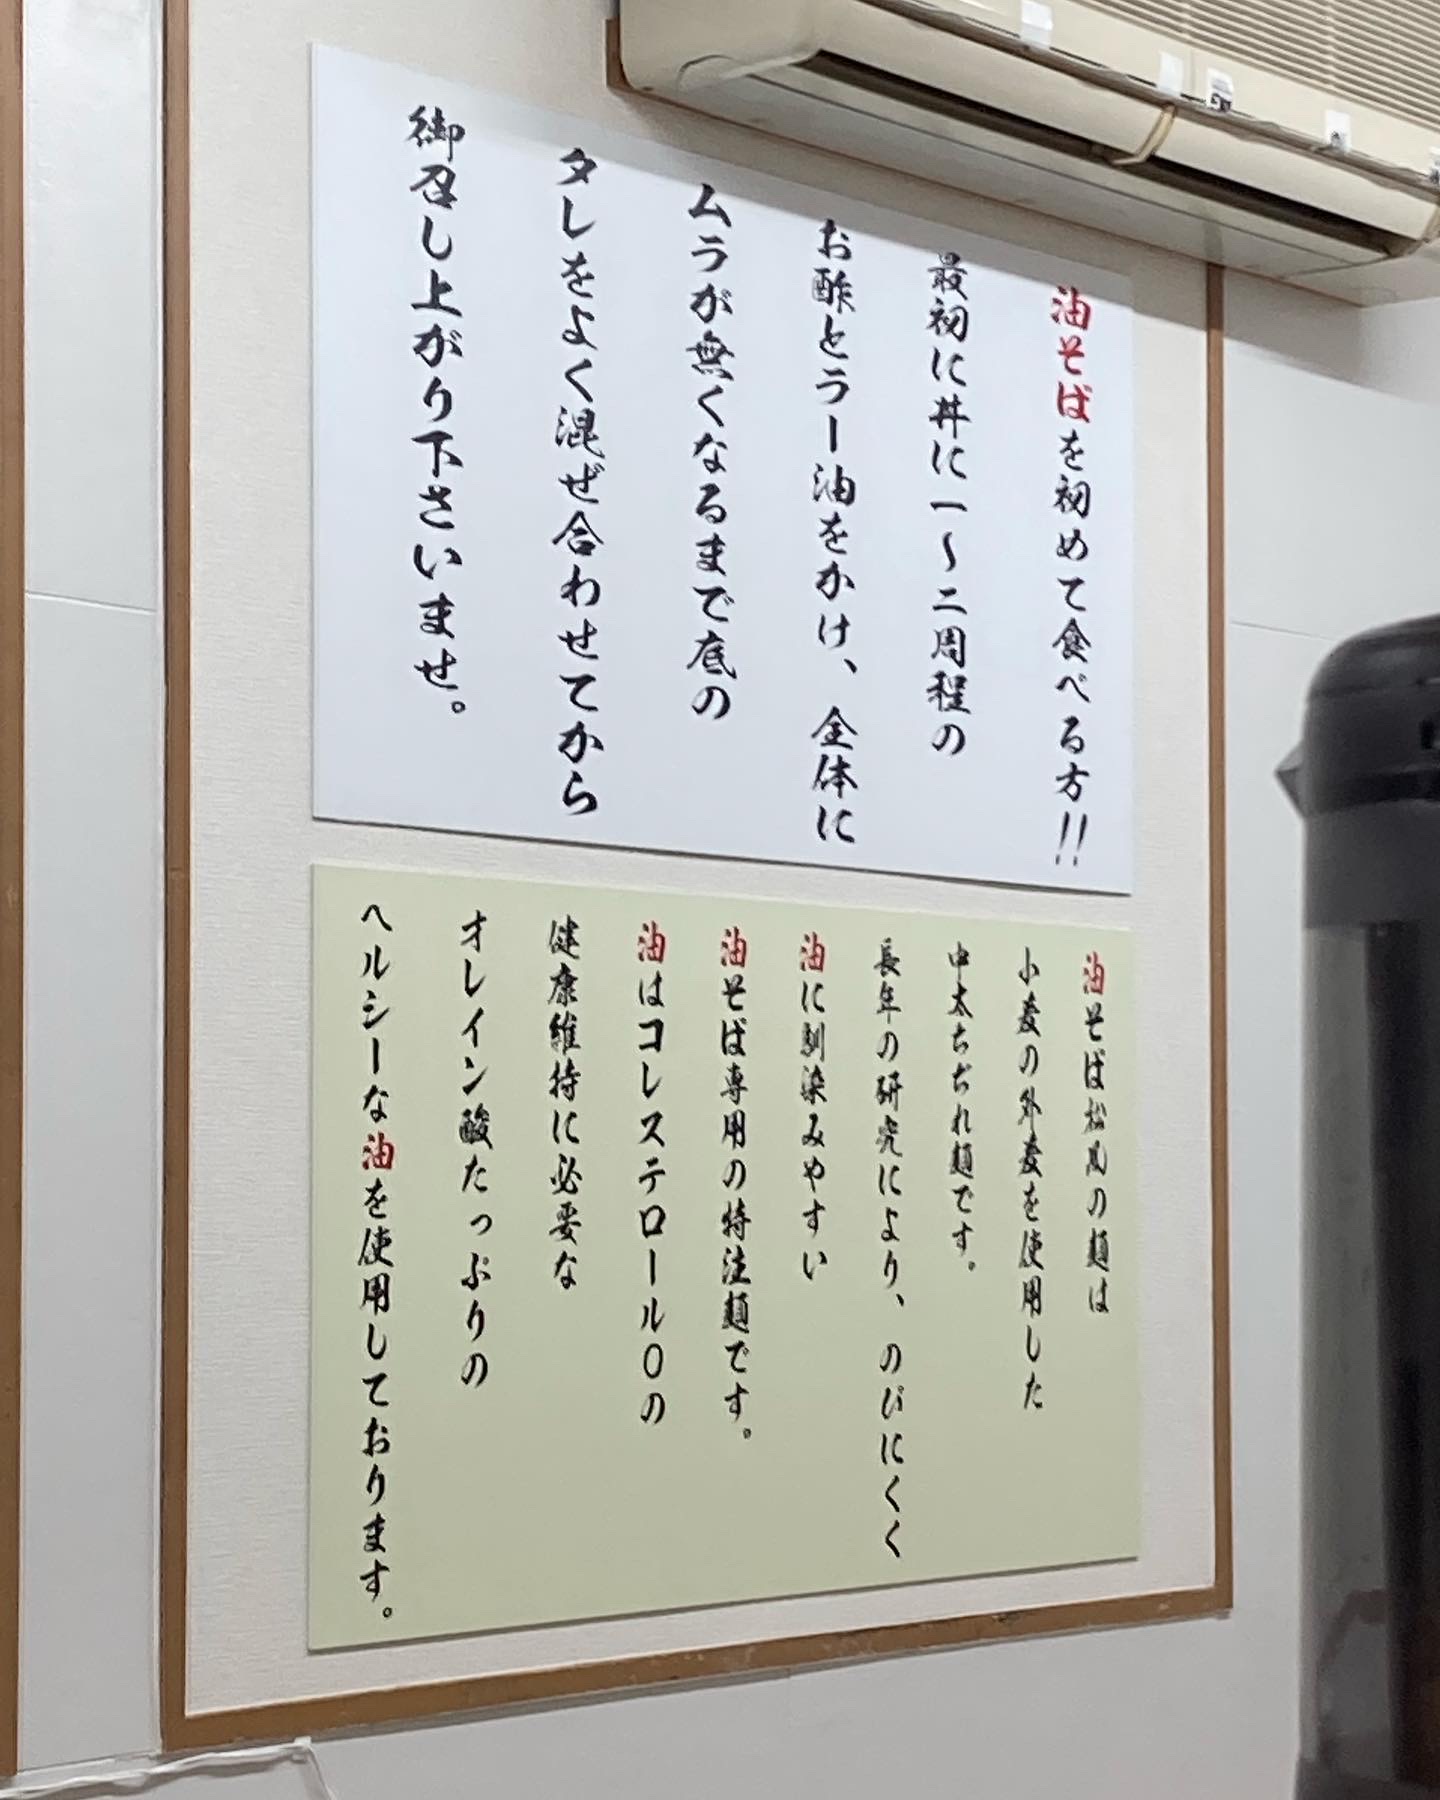 油そばを初めて食べる方!!
最初に丼に一〜二周程の
お酢とラー油をかけ、全体に
ムラが無くなるまで底の
タレをよく混ぜ合わせてから
御召し上がり下さいませ。
油そば松風の麺は
小麦の外麦を使用した
中太ちぢれ麺です。
長年の研究により、のびにくく
油に馴染みやすい
油そば専用の特注麺です。
油はコレステロール0の
健康維持に必要な
オレイン酸たっぷりの
ヘルシーな油を使用しております。